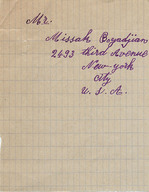 Mr.
Missak Boyadjian
2493 third Avenue
New-york
City
U. S. A.